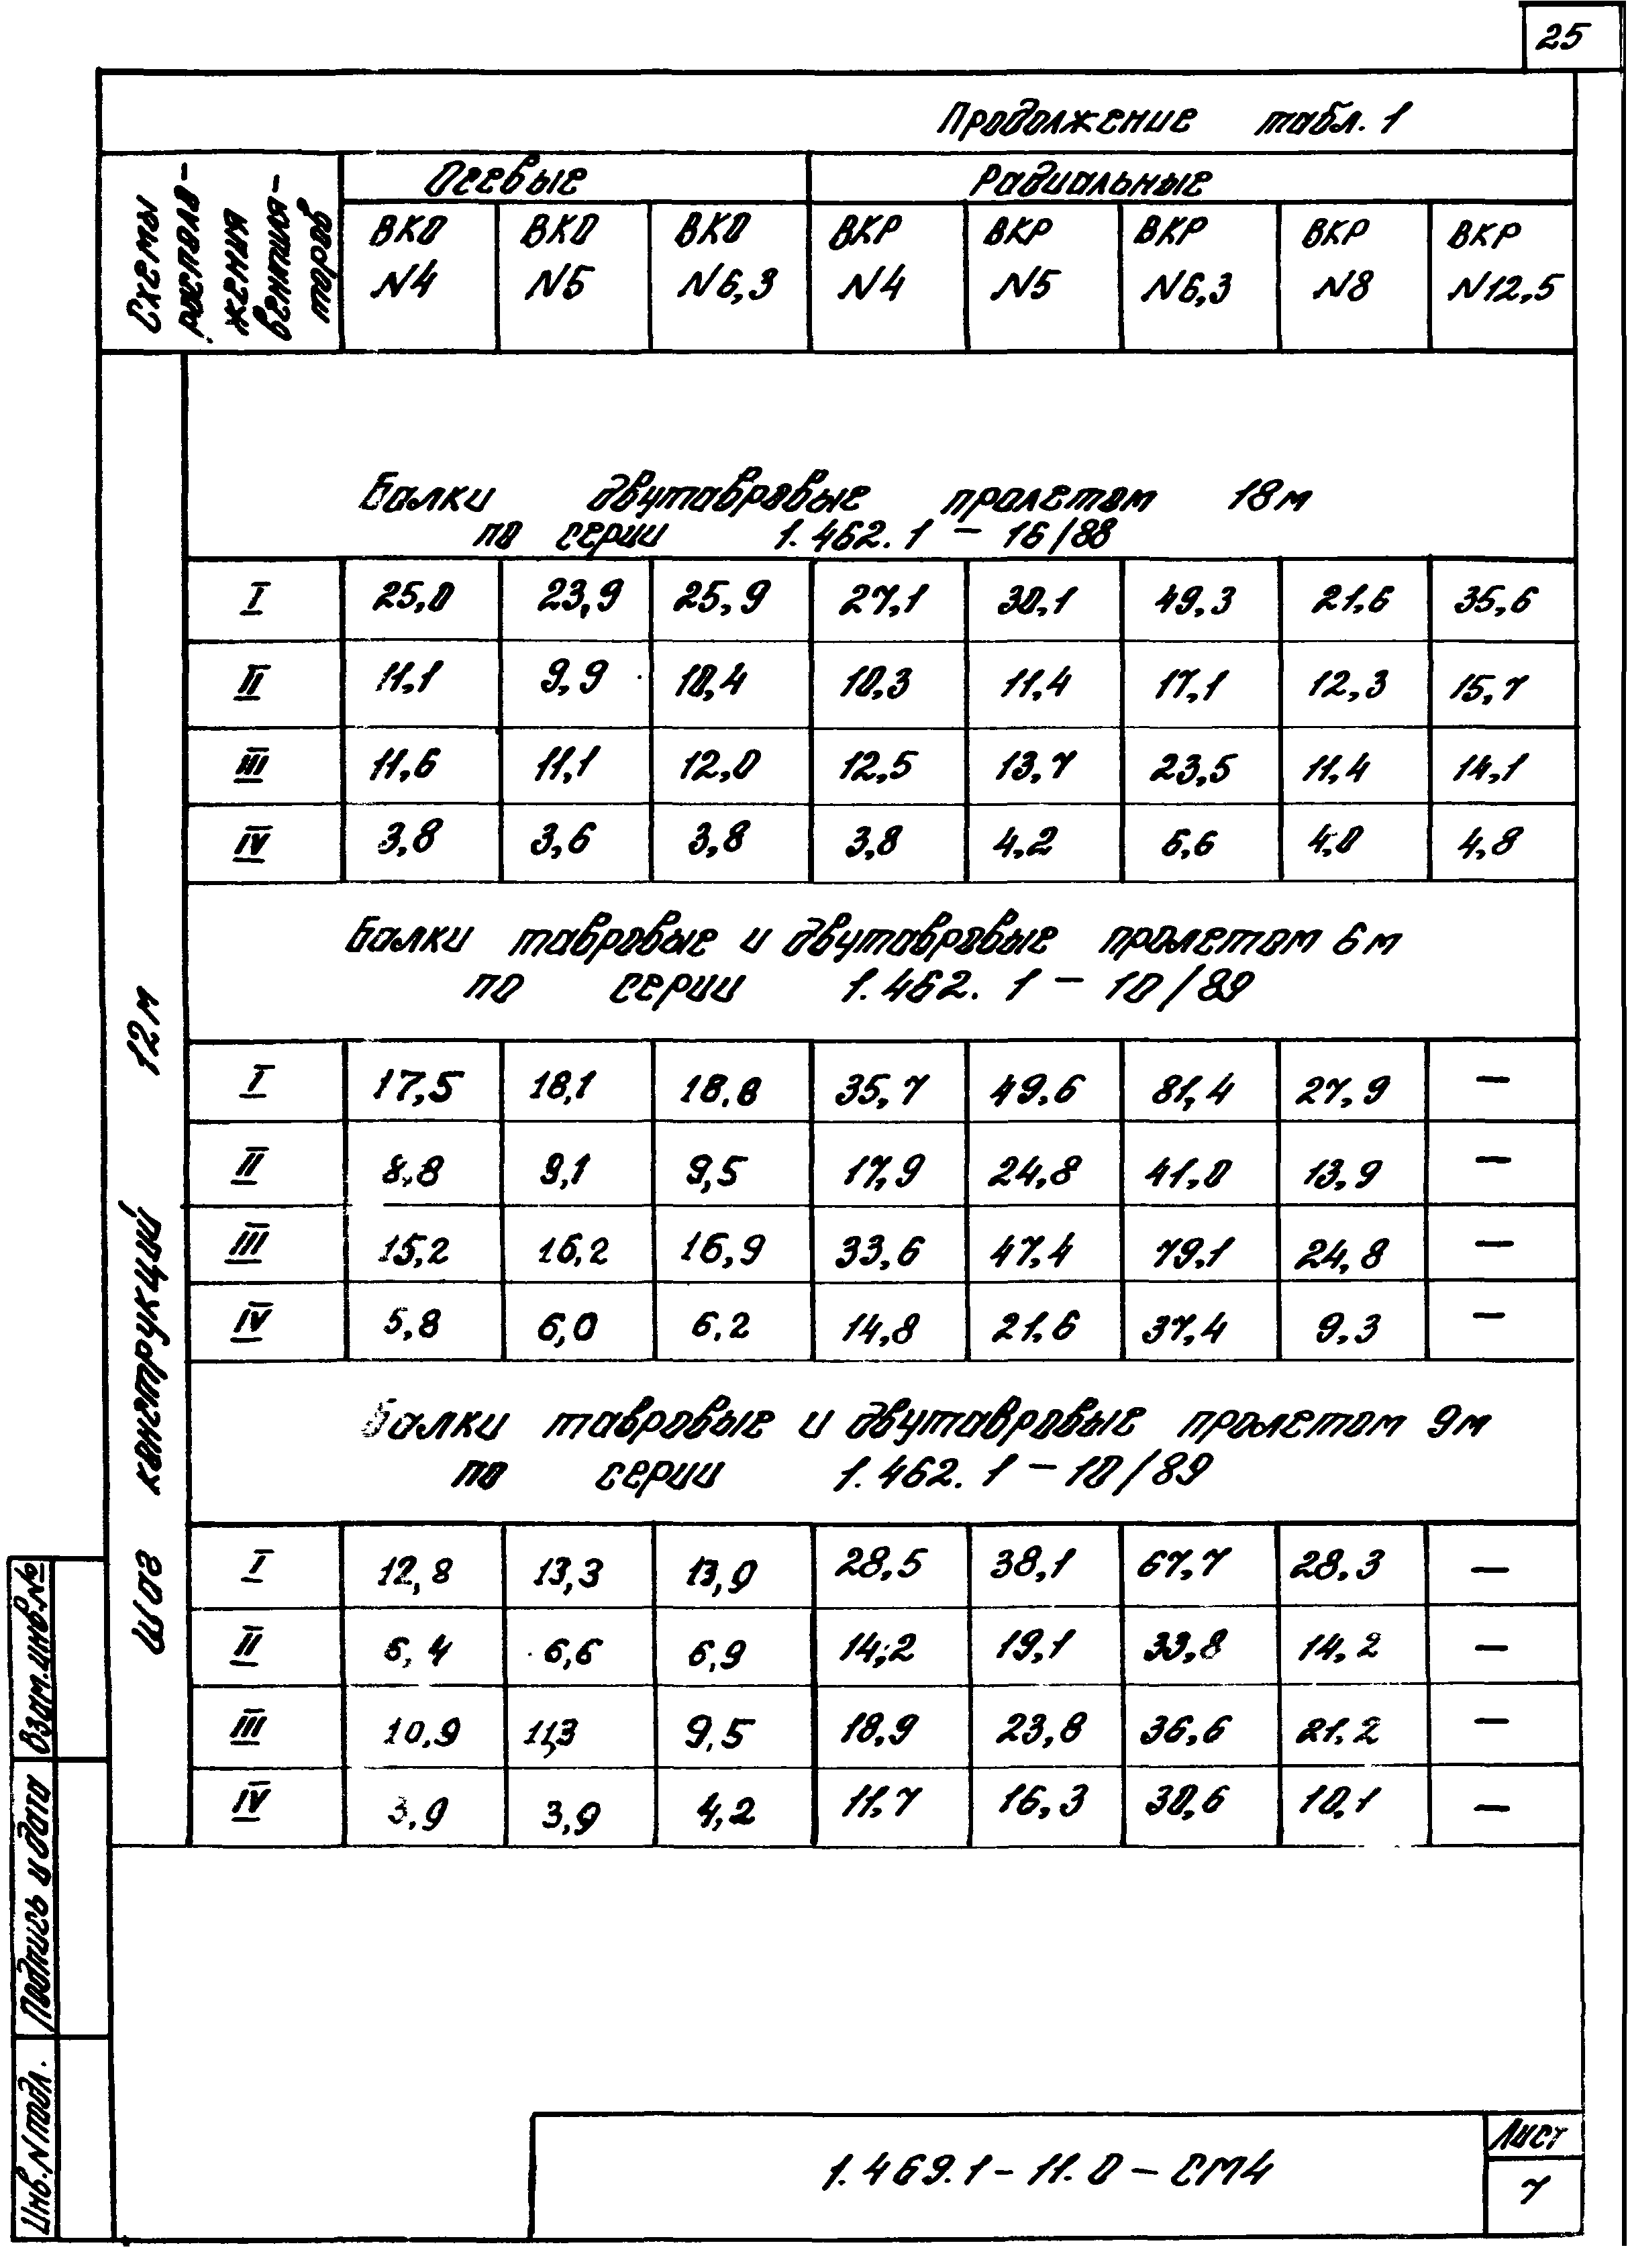 25
Продолжение табл. 1
Схемы располо-
жения
вентиля-
торов
Осевые
Радиальные
ВКО №4
ВКО №5
ВКО №6,3
ВКР №4
ВКР №5
ВКР №6,3
ВКР №8
ВКР №12,5
Шаг конструкций 12м
Балки двутавровые пролетом 18м
по серии 1.462.1 – 16/88
I 25,0 23,9 25,9 27,1 30,1 49,3 21,6 35,6
II 11,1 9,9 10,4 10,3 11,4 17,1 12,3 15,7
III 11,6 11,1 12,0 12,5 13,7 23,5 11,4 14,1
IV 3,8 3,6 3,8 3,8 4,2 6,6 4,0 4,8
Балки тавровые и двутавровые пролетом 6м
по серии 1.462.1 – 10/89
I 17,5 18,1 18,8 35,7 49,6 81,4 27,9 –
II 8,8 9,1 9,5 17,9 24,8 41,0 13,9 –
III 15,2 16,2 16,9 33,6 47,4 79,1 24,8 –
IV 5,8 6,0 6,2 14,8 21,6 37,4 9,3 –
Балки тавровые и двутавровые пролетом 9м
по серии 1.462.1 – 10/89
I 12,8 13,3 13,9 28,5 38,1 67,7 28,3 –
II 6,4 6,6 6,9 14,2 19,1 33,8 14,2 –
III 10,9 11,3 9,5 18,9 23,8 36,6 21,2 –
IV 3,9 3,9 4,2 11,7 16,3 30,6 10,1 –
Взам.инв.№
Подпись и дата
Инв.N подл.
1.469.1-11.0-СМ4
Лист
7